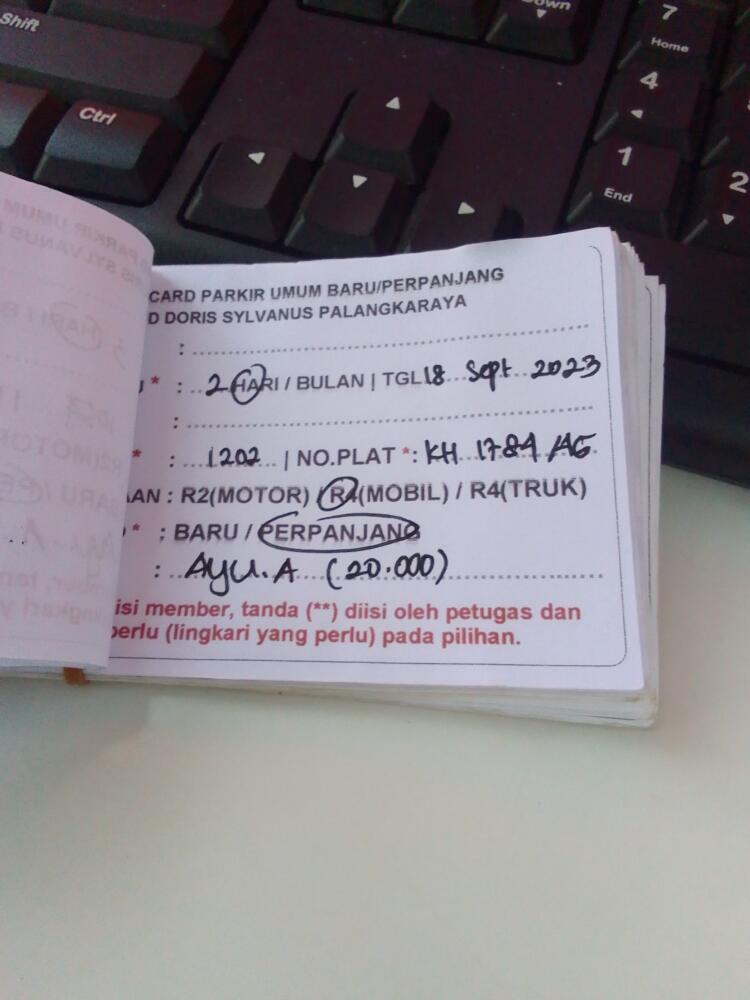 Shift
Ctrl
Down
7
Home
4
1
End
2
CARD PARKIR UMUM BARU/PERPANJANG
D DORIS SYLVANUS PALANGKARAYA
: ....................
* : ..2 HARI / BULAN | TGL 18 Sept 2023
: ....................
* : 1202 | NO.PLAT *: KH 1784 AG
AN : R2(MOTOR) / R4(MOBIL) / R4(TRUK)
* : BARU / PERPANJANG
: AYU.A (20.000)
isi member, tanda (**) diisi oleh petugas dan
perlu (lingkari yang perlu) pada pilihan.